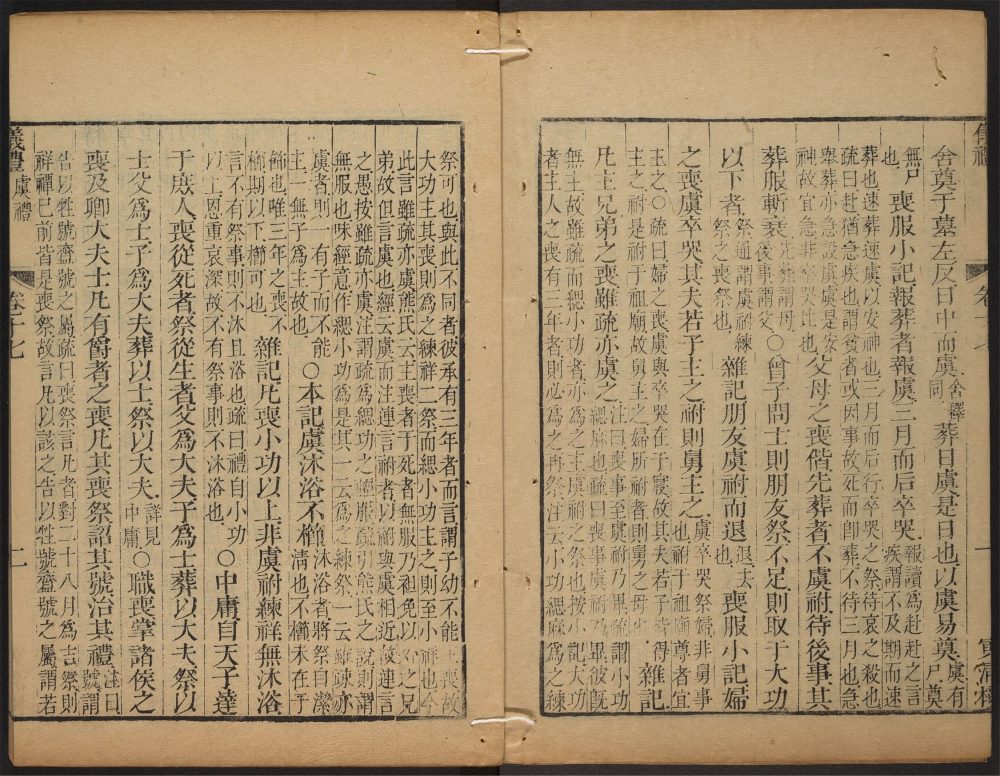 舍奠于墓左反日中而虞 舍釋同 葬日虞是日也以虞易奠 虞有尸奠
無尸也 喪服小記報葬者報虞三月而后卒哭 報讀為赴赴之言疾謂不及期而速
葬也速葬速虞以安神也三月而后行卒哭之祭待哀之殺也
疏曰赴猶急疾也謂貧者或因事故死而卽葬不待三月也急
葬亦急設虞虞是安神故宜急 父母之喪偕先葬者不虞祔待後事其
葬服斬衰 先葬謂母後事謂父 ○曾子問士則朋友祭不足則取于大功
以下者 祭通謂虞祔練祥之喪祭 雜記朋友虞祔而退 退去也 喪服小記婦
之喪虞卒哭其夫若子主之祔則舅主之 虞卒哭祭婦非舅事也祔于祖廟尊者宜
主之○疏曰婦之喪虞與卒哭在于寢故其夫若子得主之祔是祔于祖廟故舅主之婦所祔者則舅之母 雜記
凡主兄弟之喪雖疏亦虞之 注曰喪事至虞祔乃畢疏謂小功緦麻也疏曰喪事虞祔乃畢彼既
無主故雖疏而緦小功者亦為之主虞祔之祭也按小記大功
者主人之喪有三年者則必為之再祭注云小功緦麻為之練
祭可也與此不同者彼承有三年者而言謂子幼不能主喪故
大功主其喪則為之練祥二祭而緦小功主之則至小祥也今
此言雖疏亦虞熊氏云主喪者于死者無服乃袒免以之兄
弟故但言虞也經云虞而注連言祔者以祔與虞相近故連言
之愚按雖疏亦虞注謂疏為緦功之疏引熊氏之說則謂
無服也味經意作緦小功為是其一云為之練祭一云雖疎亦
虞者則一有子而不能主一無子為主故也 ○本記虞沐浴不櫛 沐浴者將祭自潔清也不櫛未在于
飾也唯三年之喪不櫛期以下櫛可也 雜記凡喪小功以上非虞祔練祥無沐浴
言不有祭事則不沐且浴也疏曰禮自小功以上恩重哀深故不有祭事則不沐浴也 ○中庸自天子達
于庶人喪從死者祭從生者父為大夫子為士葬以大夫祭以
士父為士子為大夫葬以士祭以大夫 詳見中庸 ○職喪掌諸侯之
喪及卿大夫士凡有爵者之喪凡其喪祭詔其號治其禮 注曰號謂
告以牲號齍號之屬疏曰喪祭言凡者對二十八月為吉祭則
祥禫已前皆是喪祭故言凡以該之告以牲號齍號之屬謂若
儀禮 虞禮 卷十七 二